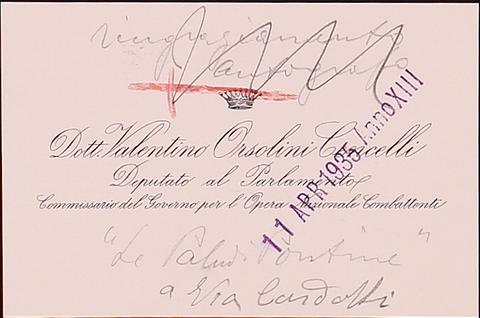 ringraziamento
autografo
Dott. Valentino Orsolini Cencelli
Deputato al Parlamento
Commissario del Governo per l'Opera Nazionale Combattenti
11 APR 1935 ANNO XIII
"Le Paludi Pontine"
a Via Cardotti